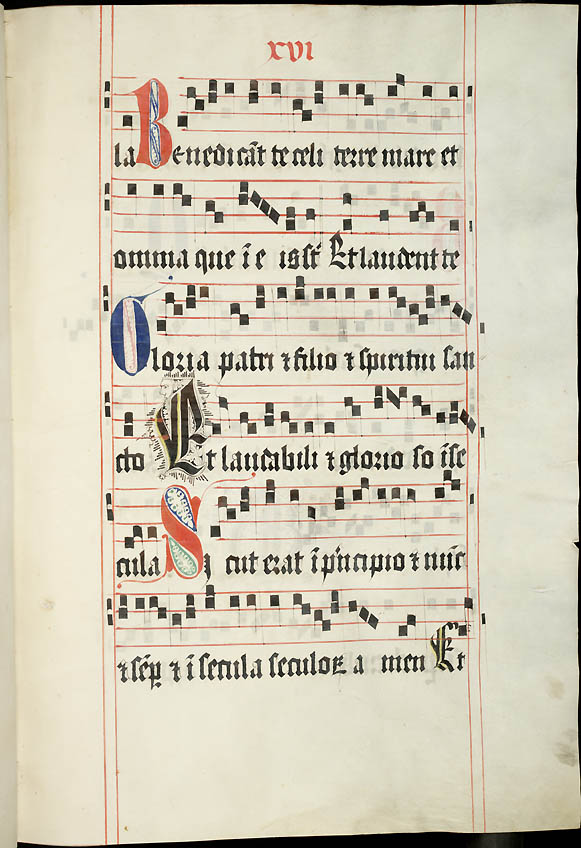 xvi
la Benedicāt te celi terre mare et
omnia que ī e is sūt Et laudent te
Gloria patri ⁊ filio ⁊ spiritui san
cto Et laudabili ⁊ glorio so ī se
cula Si cut erat ī pͥncipio ⁊ nūc
⁊ sēꝑ ⁊ ī secula seculoꝝ a men Et